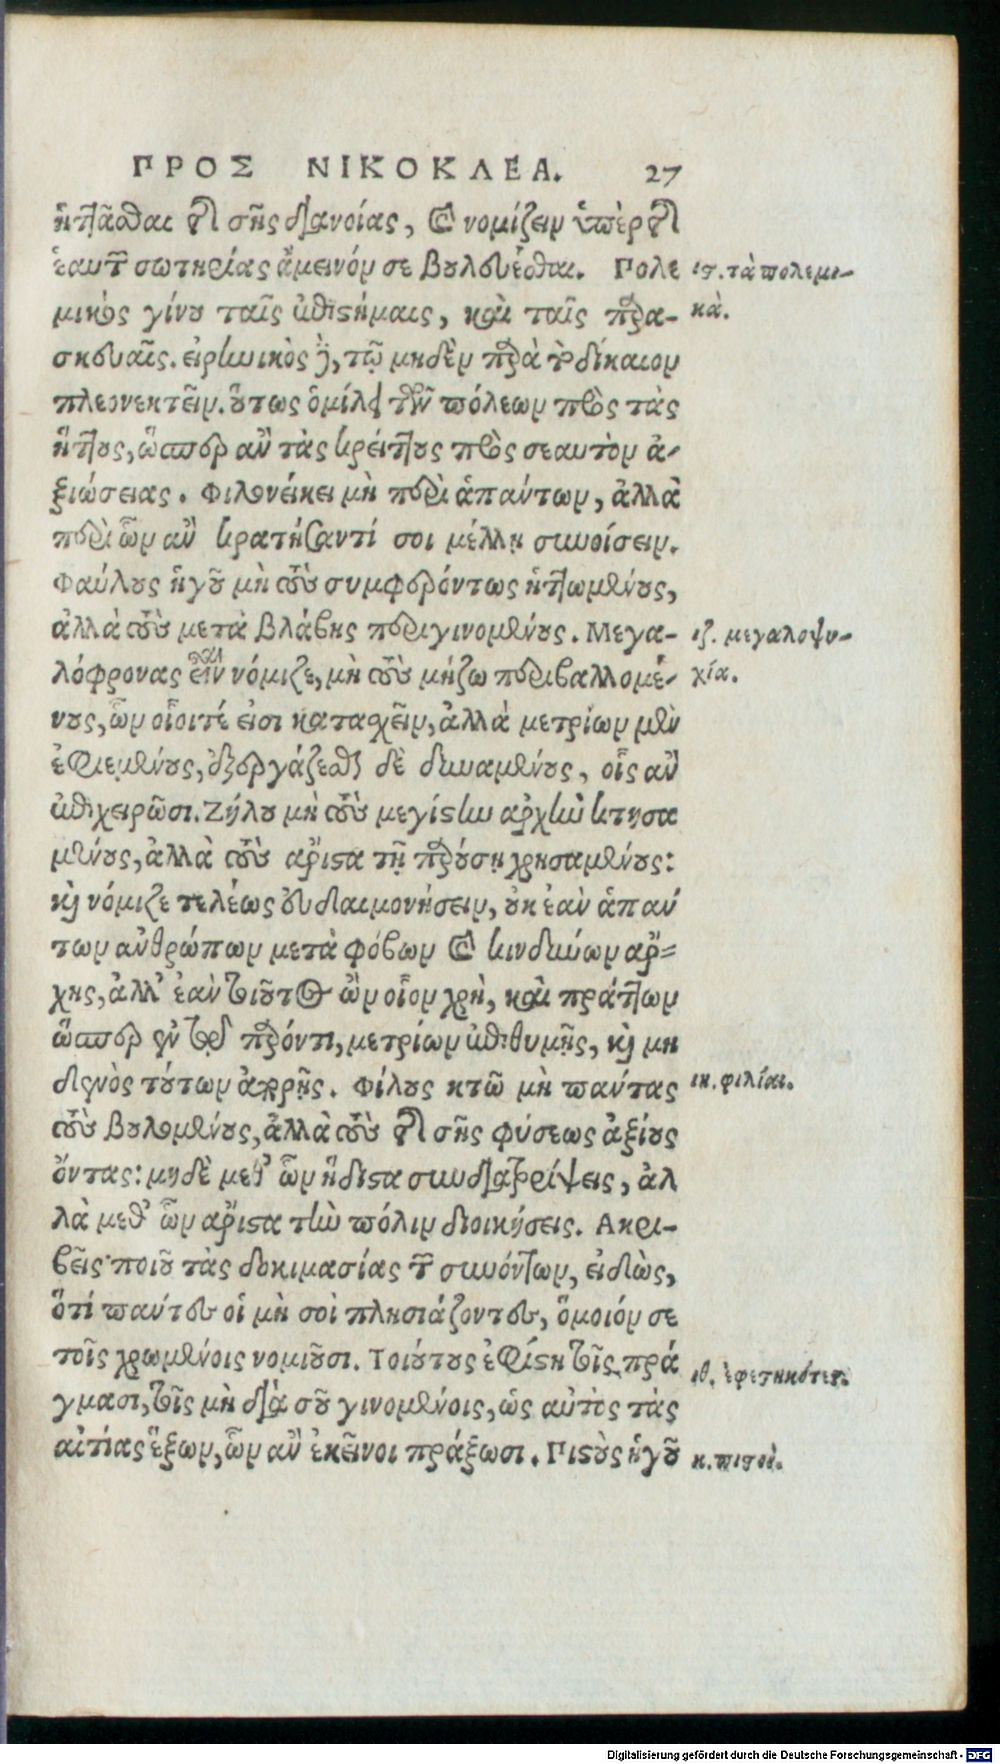 ΠΡΟΣ ΝΙΚΟΚΛΕΑ. 27
ἡττᾶσθαι τῆς σῆς διανοίας, καὶ νομίζειν ὑπὲρ τῆς
ἑαυτῶν σωτηρίας ἄμεινόν σε βουλεύεσθαι. Πολε
ιϛ. τὰ πολεμι-
μικὸς γίνου ταῖς ἐπιστήμαις, καὶ ταῖς παρα-
κά.
σκευαῖς. εἰρηνικὸς δὲ, τῷ μηδὲν παρὰ τὸ δίκαιον
πλεονεκτεῖν. οὕτως ὁμίλει τῶν πόλεων πρὸς τὰς
ἥττους, ὥσπερ ἂν τὰς κρείττους πρὸς σεαυτὸν ἀ-
ξιώσειας. Φιλονείκει μὴ περὶ ἁπάντων, ἀλλὰ
περὶ ὧν ἂν κρατήσαντί σοι μέλλῃ συνοίσειν.
Φαύλους ἡγοῦ μὴ τοὺς συμφερόντως ἡττωμένους,
ἀλλὰ τοὺς μετὰ βλάβης περιγινομένους. Μεγα-
ιζ. μεγαλοψυ-
λόφρονας εἶναι νόμιζε, μὴ τοὺς μείζω περιβαλλομέ-
χία.
νους, ὧν οἷοί τέ εἰσι κατασχεῖν, ἀλλὰ μετρίων μὲν
ἐφιεμένους, ἐξεργάζεσθαι δὲ δυναμένους, οἷς ἂν
ἐπιχειρῶσι. Ζήλου μὴ τοὺς μεγίστην ἀρχὴν κτησα
μένους, ἀλλὰ τοὺς ἄριστα τῇ παρούσῃ χρησαμένους:
καὶ νόμιζε τελέως εὐδαιμονήσειν, οὐκ ἐὰν ἁπάν
των ἀνθρώπων μετὰ φόβων καὶ κινδύνων ἄρ-
χῃς, ἀλλ' ἐὰν τοιοῦτος ὢν οἷον χρὴ, καὶ πράττων
ὥσπερ ἐν τῷ παρόντι, μετρίων ἐπιθυμῇς, καὶ μη
δενὸς τούτων ἀτυχῇς. Φίλους κτῶ μὴ πάντας
ιη. φιλίαι.
τοὺς βουλομένους, ἀλλὰ τοὺς τῆς σῆς φύσεως ἀξίους
ὄντας: μηδὲ μεθ' ὧν ἥδιστα συνδιατρίψεις, ἀλ
λὰ μεθ' ὧν ἄριστα τὴν πόλιν διοικήσεις. Ακρι-
βεῖς ποιοῦ τὰς δοκιμασίας τῶν συνόντων, εἰδὼς,
ὅτι πάντες οἱ μὴ σοὶ πλησιάζοντες, ὅμοιόν σε
τοῖς χρωμένοις νομιοῦσι. Τοιούτους ἐφίστη τοῖς πρά
ιθ. ἐφεστηκότες.
γμασι, τοῖς μὴ διὰ σοῦ γινομένοις, ὡς αὐτὸς τὰς
αἰτίας ἕξων, ὧν ἂν ἐκεῖνοι πράξωσι. Πιστοὺς ἡγοῦ
κ. πιστοί.
Digitalisierung gefördert durch die Deutsche Forschungsgemeinschaft - DFG